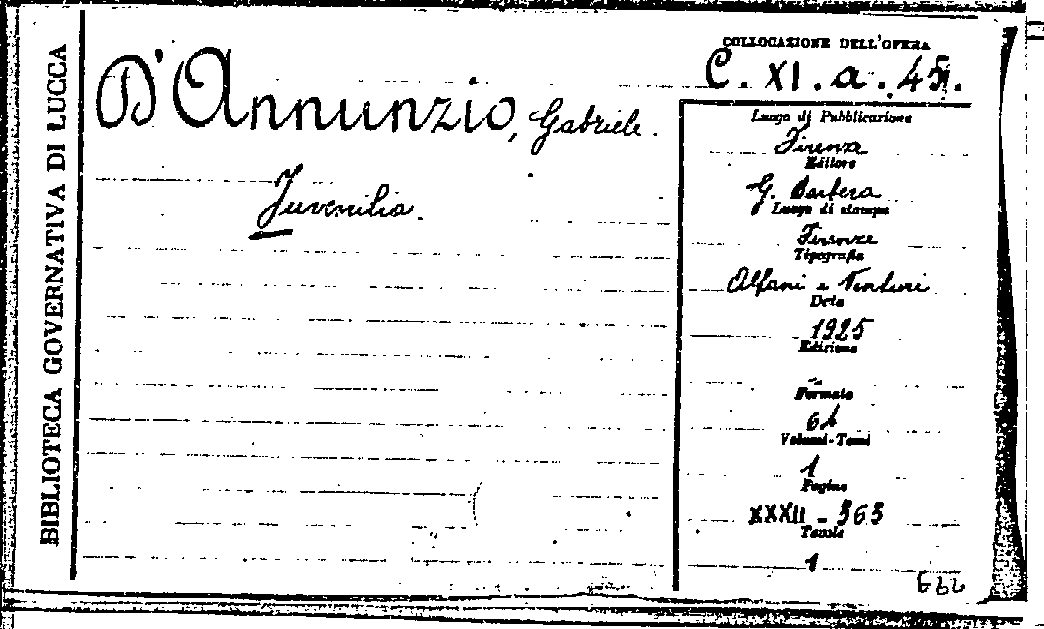 BIBLIOTECA GOVERNATIVA DI LUCCA
D'Annunzio, Gabriele.
Juvenilia.
COLLOCAZIONE DELL'OPERA
C. XI. a. 45.
Luogo di Pubblicazione
Firenze
Editore
G. Barbera
Luogo di stampa
Firenze
Tipografia
Alfani e Venturi
Data
1925
Edizione
Formato
64
Volumi-Tomi
1
Pagine
XXXII - 363
Tavole
1